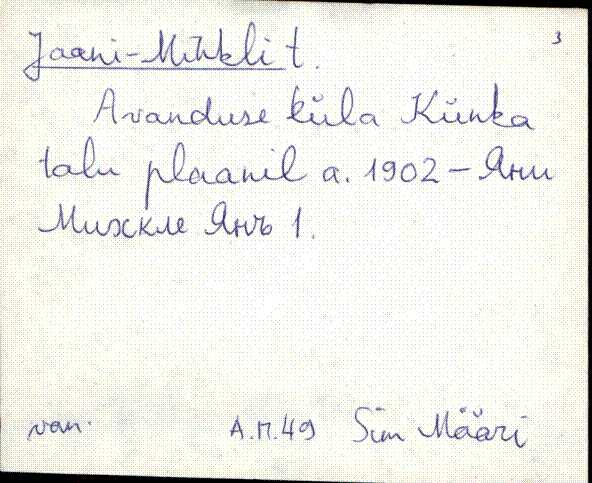 Jaani-Mihkli t. 3
Avanduse küla Künka
talu plaanil a. 1902 – Яни
Михкле Янъ 1.
van. A.M.49 Sim Määri